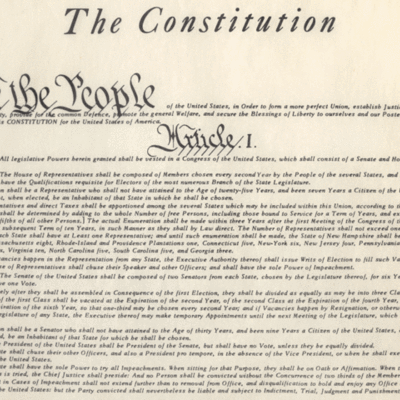 The Constitution
The People of the United States, in Order to form a more perfect Union, establish Justic
ty, provide for the common Defence, promote the general Welfare, and secure the Blessings of Liberty to ourselves and our Poste
s CONSTITUTION for the United States of America.
Article I.
All legislative Powers herein granted shall be vested in a Congress of the United States, which shall consist of a Senate and Ho
The House of Representatives shall be composed of Members chosen every second Year by the People of the several States, and
have the Qualifications requisite for Electors of the most numerous Branch of the State Legislature.
n shall be a Representative who shall not have attained to the Age of twenty-five Years, and been seven Years a Citizen of the U
t, when elected, be an Inhabitant of that State in which he shall be chosen.
entatives and direct Taxes shall be apportioned among the several States which may be included within this Union, according to th
ll be determined by adding to the whole Number of free Persons, including those bound to Service for a Term of Years, and ex
-fifths of all other Persons.] The actual Enumeration shall be made within three Years after the first Meeting of the Congress of t
subsequent Term of ten Years, in such Manner as they shall by Law direct. The Number of Representatives shall not exceed one
ch State shall have at Least one Representative; and until such enumeration shall be made, the State of New Hampshire shall be
ssachusetts eight, Rhode-Island and Providence Plantations one, Connecticut five, New-York six, New Jersey four, Pennsylvania
x, Virginia ten, North Carolina five, South Carolina five, and Georgia three.
ancies happen in the Representation from any State, the Executive Authority thereof shall issue Writs of Election to fill such Va
e of Representatives shall chuse their Speaker and other Officers; and shall have the sole Power of Impeachment.
The Senate of the United States shall be composed of two Senators from each State, chosen by the Legislature thereof, for six Ye
one Vote.
ely after they shall be assembled in Consequence of the first Election, they shall be divided as equally as may be into three Clas
of the first Class shall be vacated at the Expiration of the second Year, of the second Class at the Expiration of the fourth Year,
iration of the sixth Year, so that one-third may be chosen every second Year; and if Vacancies happen by Resignation, or otherw
egislature of any State, the Executive thereof may make temporary Appointments until the next Meeting of the Legislature, which
n shall be a Senator who shall not have attained to the Age of thirty Years, and been nine Years a Citizen of the United States, a
d, be an Inhabitant of that State for which he shall be chosen.
President of the United States shall be President of the Senate, but shall have no Vote, unless they be equally divided.
te shall chuse their other Officers, and also a President pro tempore, in the absence of the Vice President, or when he shall exer
the United States.
te shall have the sole Power to try all Impeachments. When sitting for that Purpose, they shall be on Oath or Affirmation. When t
s is tried, the Chief Justice shall preside: And no Person shall be convicted without the Concurrence of two thirds of the Member
t in Cases of Impeachment shall not extend further than to removal from Office, and disqualification to hold and enjoy any Office
e United States: but the Party convicted shall nevertheless be liable and subject to Indictment, Trial, Judgment and Punishment